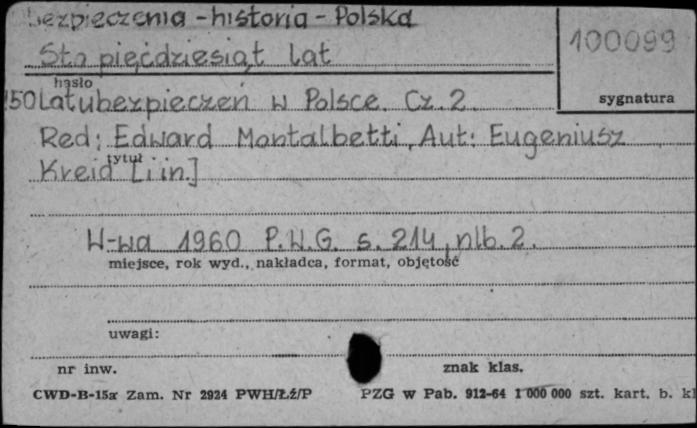 bezpieczenia - historia - Polska
Sto pięćdziesiąt lat
100099
hasło
sygnatura
150 Lat ubezpieczeń w Polsce. Cz. 2.
Red: Edward Montalbetti, Aut: Eugeniusz
tytuł
Kreid [i in.]
W-wa 1960 P.W.G. s. 214, nlb. 2.
miejsce, rok wyd., nakładca, format, objętość
uwagi:
nr inw.
znak klas.
CWD-B-15a Zam. Nr 2924 PWH/Łź/P PZG w Pab. 912-64 1 000 000 szt. kart. b. kl